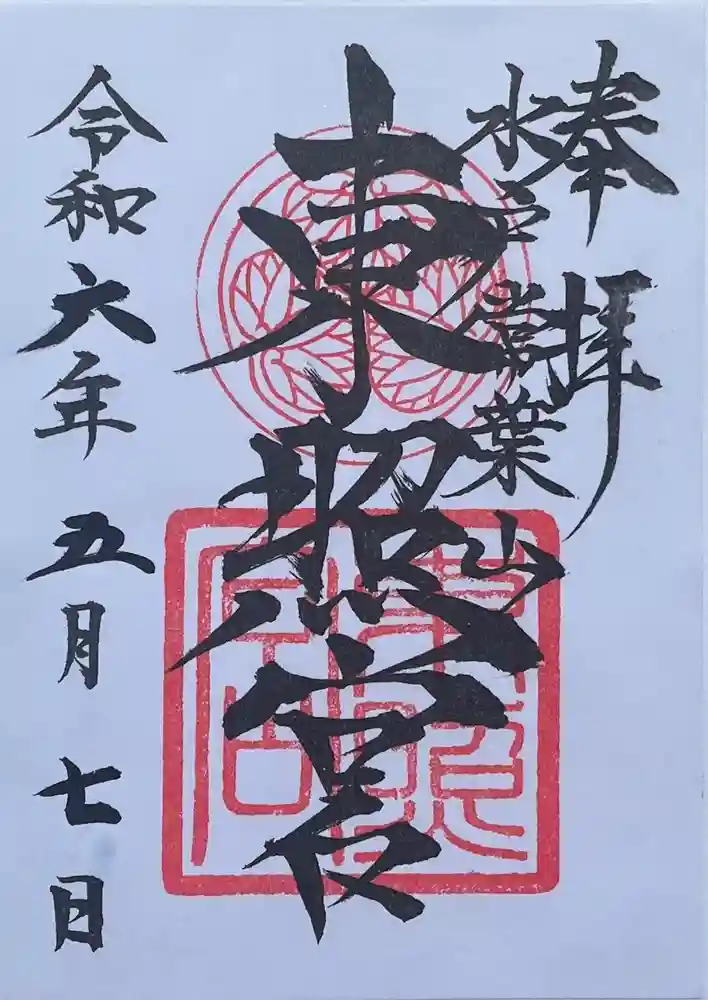 奉拝
水戸常葉山
東照宮
令和六年五月七日
東照宮